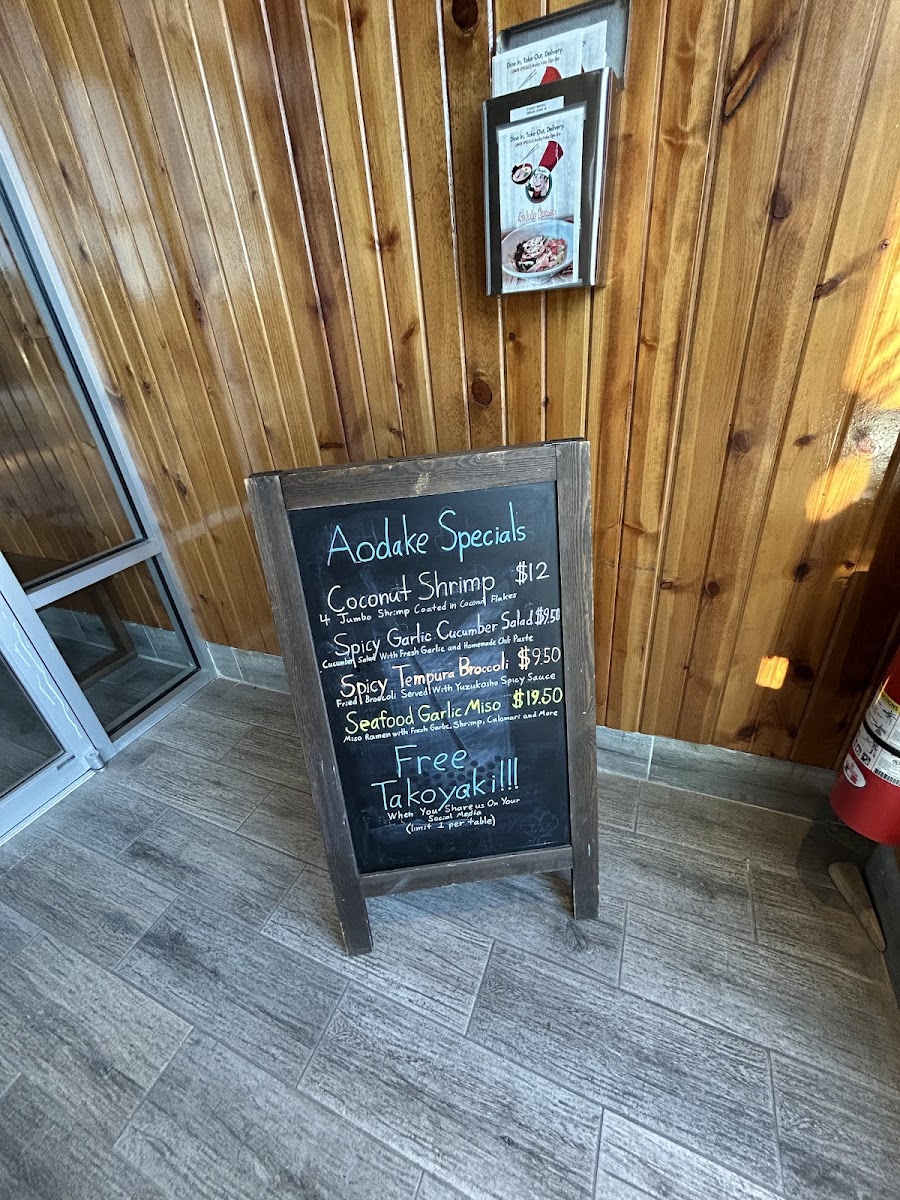 Dine In. Take-Out. Delivery.
Dine In. Take-Out. Delivery.
Aodake Specials
Coconut Shrimp $12
4 Jumbo Shrimp Coated in Coconut Flakes
Spicy Garlic Cucumber Salad $9.50
Cucumber Salad With Fresh Garlic and Homemade Chili Paste
Spicy Tempura Broccoli $9.50
Fried Broccoli Served With Yuzukosho Spicy Sauce
Seafood Garlic Miso $19.50
Miso Ramen with Fresh Garlic, Shrimp, Calamari and More
Free
Takoyaki!!!
When You Share us On Your
Social Media
(limit 1 per table)